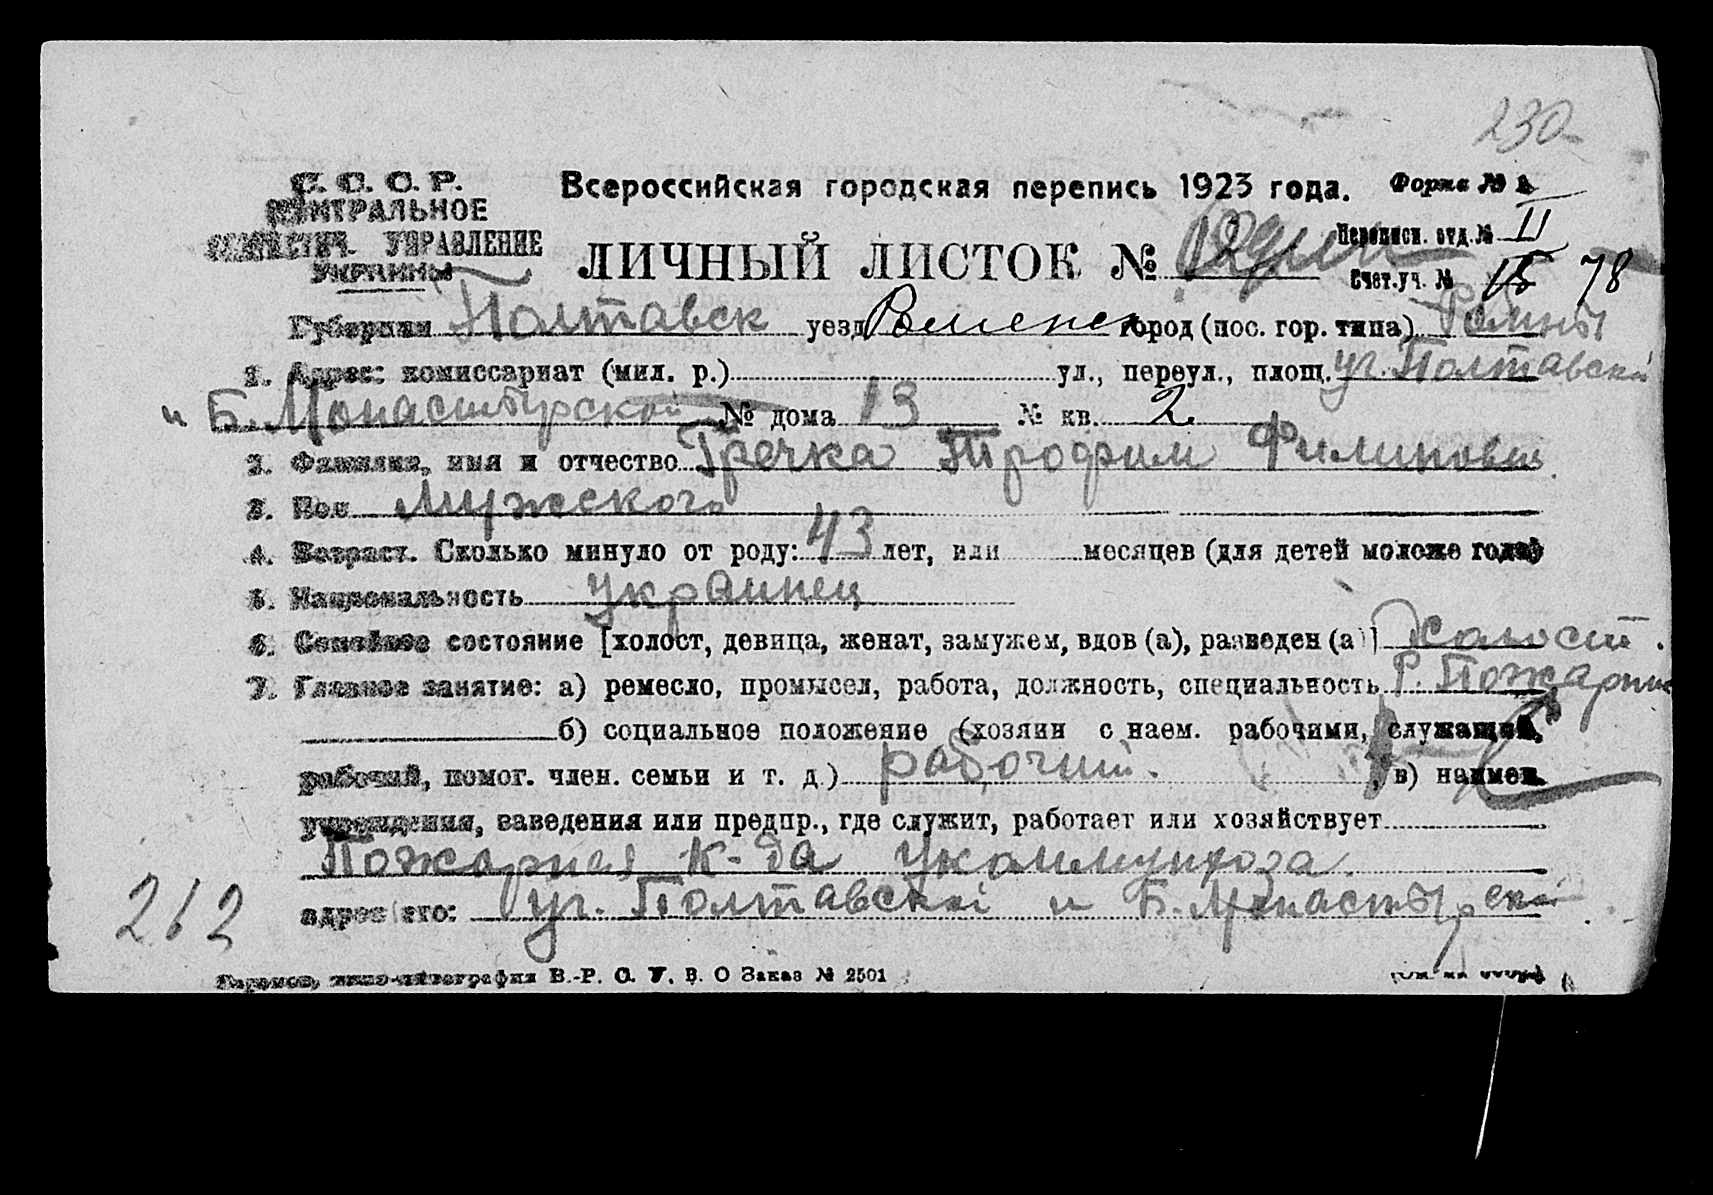 230
С. С. С. Р.
ЦЕНТРАЛЬНОЕ
СТАТИСТИЧ. УПРАВЛЕНИЕ
УКРАИНЫ
Всероссийская городская перепись 1923 года. Форма № 1
ЛИЧНЫЙ ЛИСТОК № 12 Переписн. отд. № II
Счет. уч. № 15 78
Губерния Полтавск уезд Роменск город (пос. гор. типа) Ромны
1. Адрес: комиссариат (мил. р.) ул., переул., площ. уг. Полтавской
и Б. Монастырской № дома 13 № кв. 2
2. Фамилия, имя и отчество Гречка Трофим Филипович
3. Пол Мужского
4. Возраст. Сколько минуло от роду: 43 лет, или месяцев (для детей моложе года)
5. Национальность украинец
6. Семейное состояние [холост, девица, женат, замужем, вдов (а), разведен (а)] холост.
7. Главное занятие: а) ремесло, промысел, работа, должность, специальность Р. Пожарник
б) социальное положение (хозяин с наем. рабочими, служащий,
рабочий, помог. член. семьи и т. д.) рабочий. , в) наимен.
учреждения, заведения или предпр., где служит, работает или хозяйствует
Пожарная К-да Укоммунхоза.
адрес его: уг. Полтавской и Б. Монастырской
262
типо-литография В.-Р. С. У. В. О Заказ № 2501